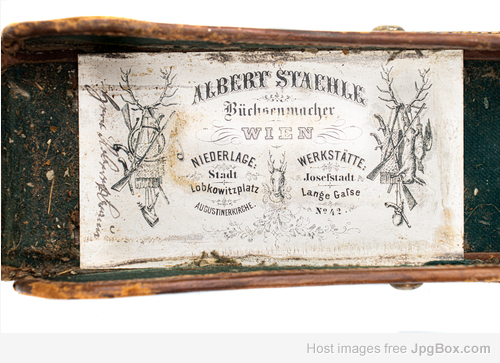 ALBERT STAEHLE
Büchsenmacher
WIEN
NIEDERLAGE:
Stadt
Lobkowitzplatz
AUGUSTINERKIRCHE.
WERKSTÄTTE:
Josefstadt
Lange Gasse
No 42.
Host images free JpgBox.com